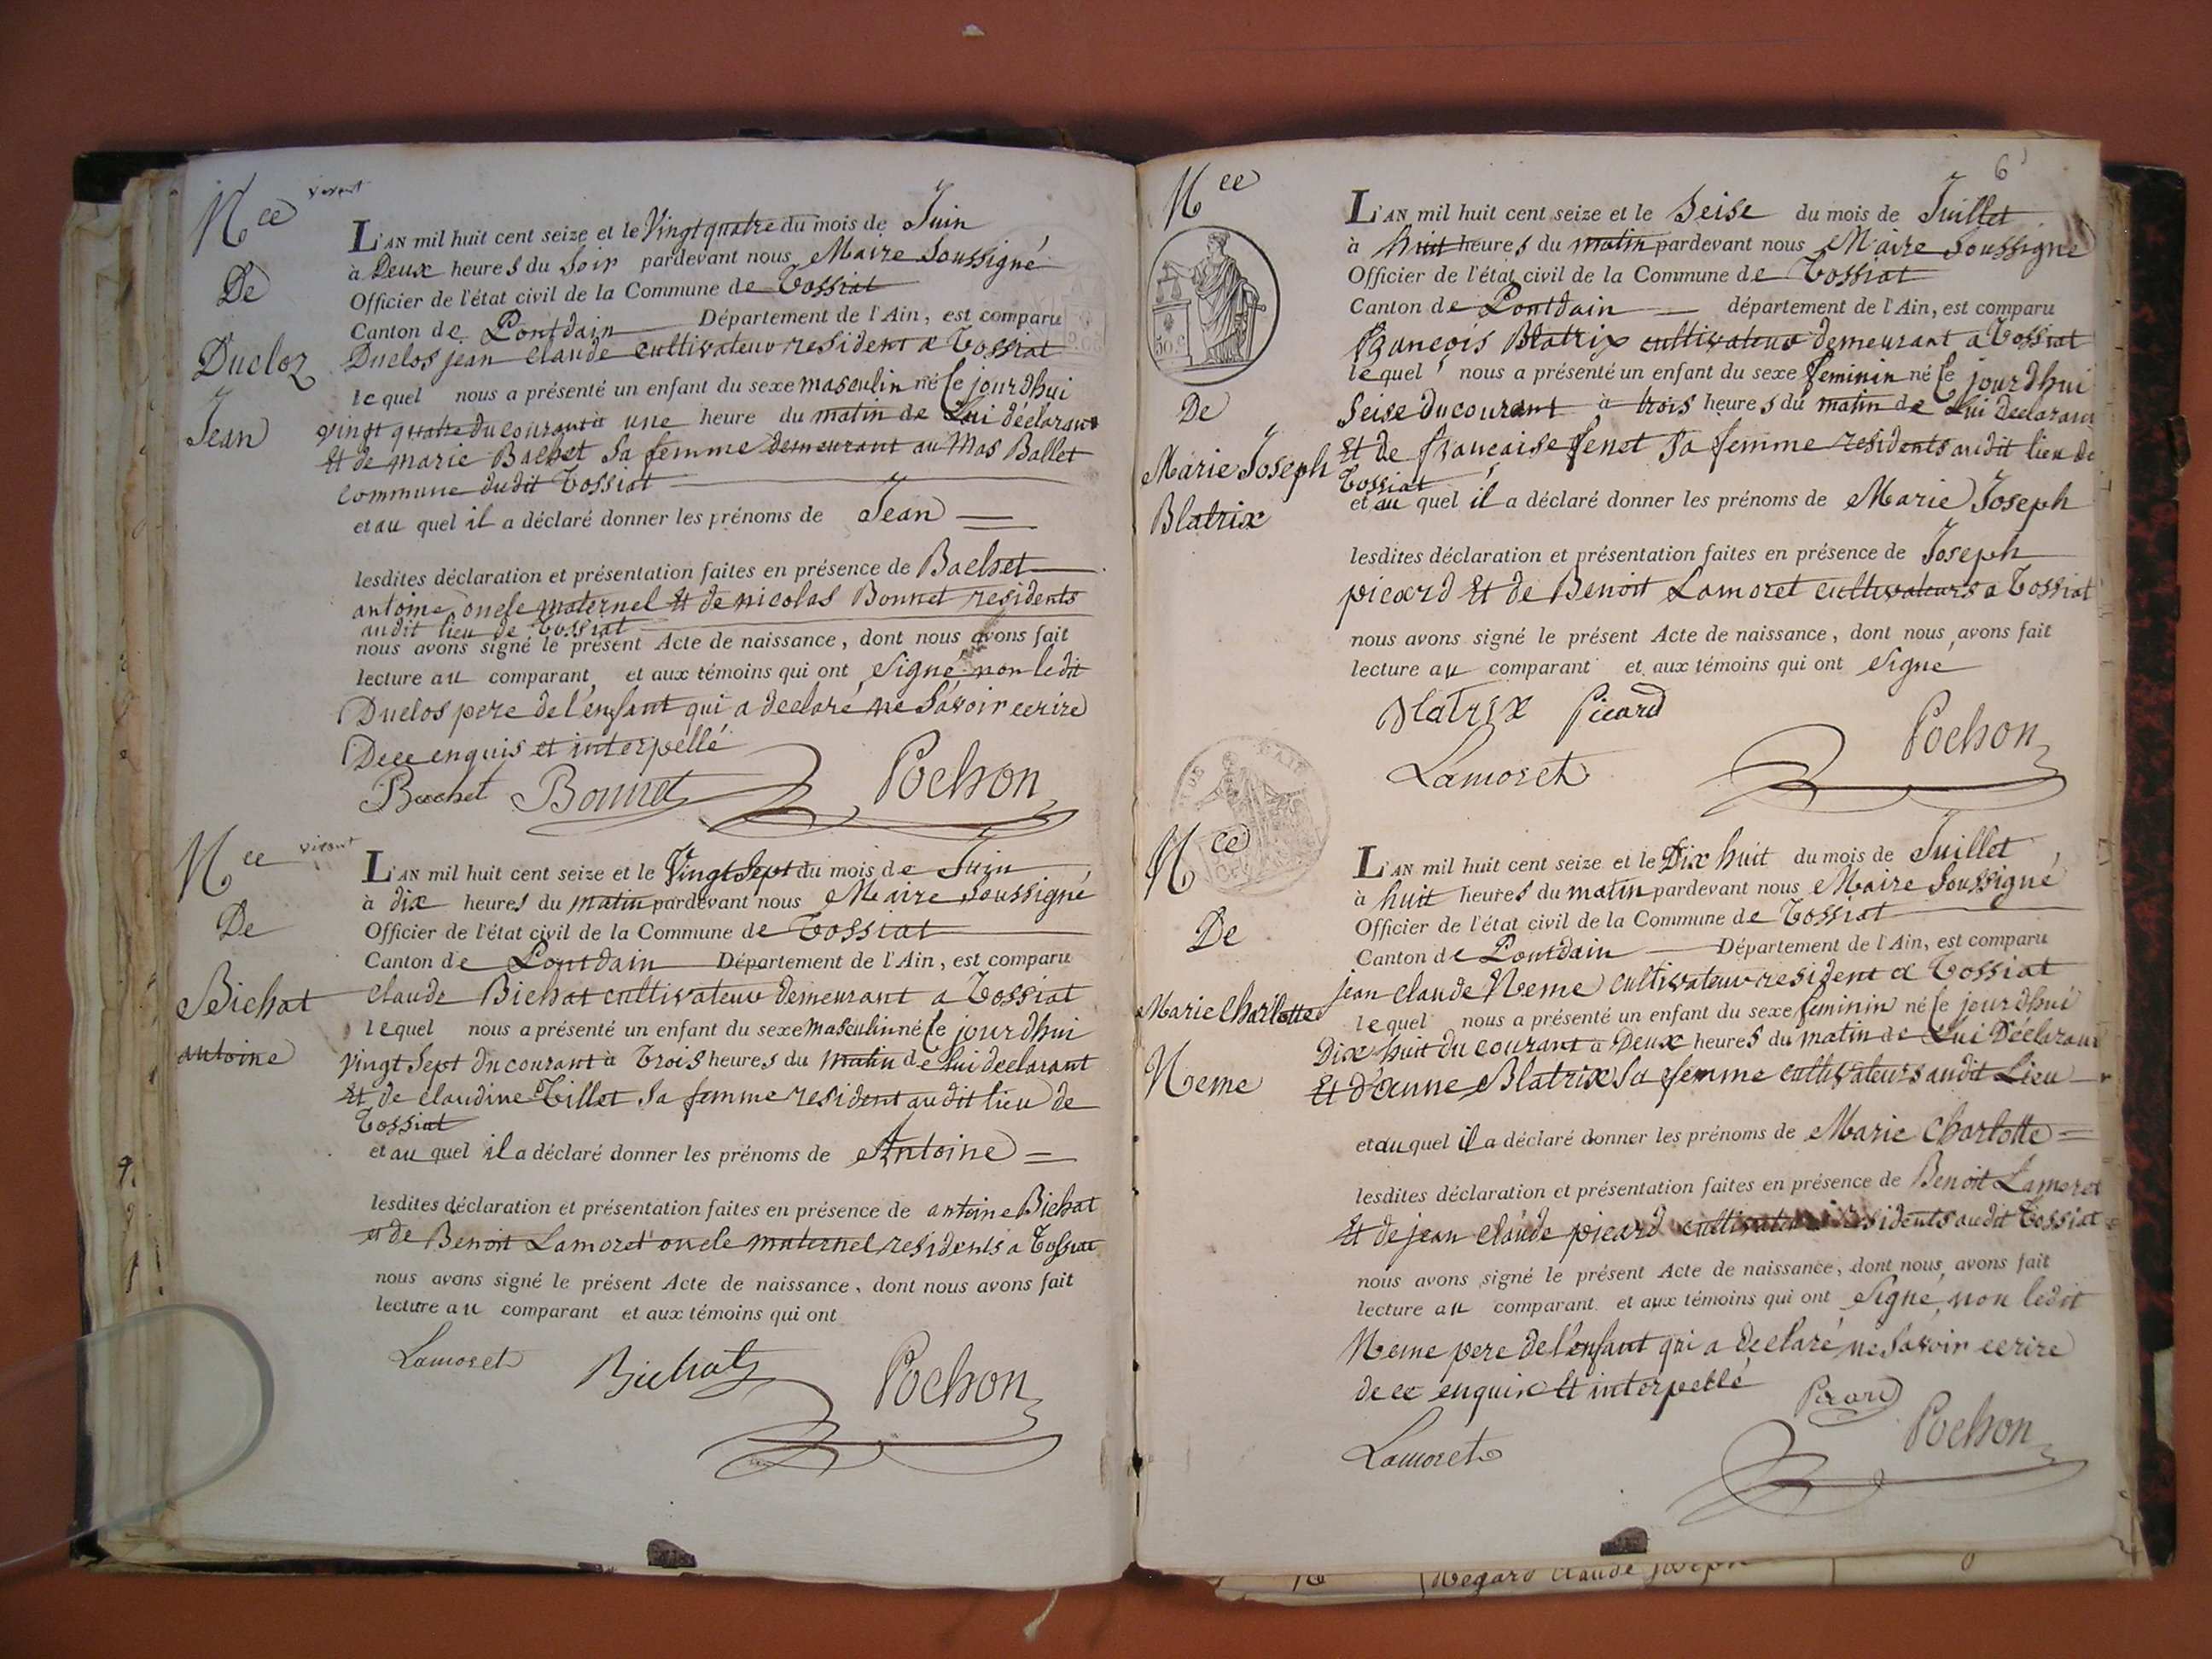 Nce vivant
De
Ducloz
Jean
L'AN mil huit cent seize et le Vingt quatre du mois de Juin
à Deux heures du Soir pardevant nous Maire Soussigné
Officier de l'état civil de la Commune de Tossiat
Canton de Pontdain Département de l'Ain, est comparu
Duclos jean claude cultivateur resident a Tossiat
lequel nous a présenté un enfant du sexe masculin né le jourdhui
vingt quatre du courant à une heure du matin de Lui declarant
Et de marie Bachet Sa femme demeurant au Mas Ballet
commune dudit Tossiat
et au quel il a déclaré donner les prénoms de Jean
lesdites déclaration et présentation faites en présence de Bachet
antoine, oncle maternel Et de nicolas Bonnet residents
audit lieu de Tossiat
nous avons signé le présent Acte de naissance, dont nous avons fait
lecture au comparant et aux témoins qui ont Signé non ledit
Duclos pere de l'enfant qui a declaré ne Savoir ecrire
Dece enquis et interpellé
Bachet Bonnet Pochon
Nce vivant
De
Bichat
antoine
L'AN mil huit cent seize et le Vingt Sept du mois de Juin
à dix heures du matin pardevant nous Maire Soussigné
Officier de l'état civil de la Commune de Tossiat
Canton de Pontdain Département de l'Ain, est comparu
claude Bichat cultivateur demeurant a Tossiat
lequel nous a présenté un enfant du sexe masculin né le jourdhui
vingt Sept du courant à Trois heures du matin de Lui declarant
Et de claudine Tillet Sa femme resident audit lieu de
Tossiat
et au quel il a déclaré donner les prénoms de Antoine
lesdites déclaration et présentation faites en présence de antoine Bichat
et de Benoit Lamoret oncle maternel residents a Tossiat
nous avons signé le présent Acte de naissance, dont nous avons fait
lecture au comparant et aux témoins qui ont
Lamoret Bichat Pochon
6
Nce
50 c
De
Marie Joseph
Blatrix
L'AN mil huit cent seize et le Seise du mois de Juillet
à huit heures du matin pardevant nous Maire Soussigné
Officier de l'état civil de la Commune de Tossiat
Canton de Pontdain département de l'Ain, est comparu
François Blatrix cultivateur demeurant a Tossiat
lequel nous a présenté un enfant du sexe feminin né le jourdhui
Seise du courant à trois heures du matin de Lui declarant
Et de francaise fenet Sa femme residents audit lieu de
Tossiat
et au quel il a déclaré donner les prénoms de Marie Joseph
lesdites déclaration et présentation faites en présence de Joseph
picard Et de Benoit Lamoret cultivateurs a Tossiat
nous avons signé le présent Acte de naissance, dont nous avons fait
lecture au comparant et aux témoins qui ont Signé
Blatrix Picard
Lamoret Pochon
Nce
De
Marie Charlotte
Neme
L'AN mil huit cent seize et le Dix huit du mois de Juillet
à huit heures du matin pardevant nous Maire Soussigné
Officier de l'état civil de la Commune de Tossiat
Canton de Pontdain Département de l'Ain, est comparu
jean claude Neme cultivateur resident a Tossiat
lequel nous a présenté un enfant du sexe feminin né le jourdhui
Dix huit du courant à Deux heures du matin de Lui Declarant
Et d'anne Blatrix Sa femme cultivateurs audit Lieu
et au quel il a déclaré donner les prénoms de Marie Charlotte
lesdites déclaration et présentation faites en présence de Benoit Lamoret
Et de jean claude picard residents audit Tossiat
nous avons signé le présent Acte de naissance, dont nous avons fait
lecture au comparant et aux témoins qui ont Signé, non ledit
Neme pere de l'enfant qui a declaré ne Savoir ecrire
de ce enquis Et interpellé Picard
Lamoret Pochon
Claude joseph